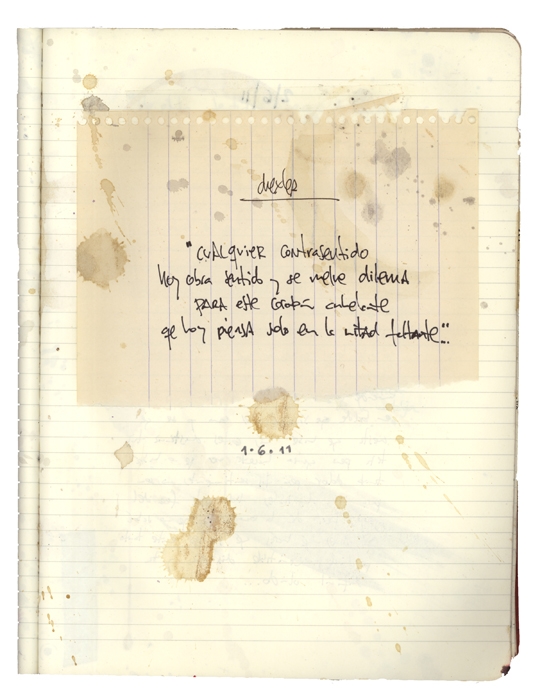 drexler
"CUALQUIER contrasentido
hoy cobra sentido y se vuelve dilema
PARA este corazón anhelante
qe hoy piensa solo en la mitad faltante..."
1·6·11